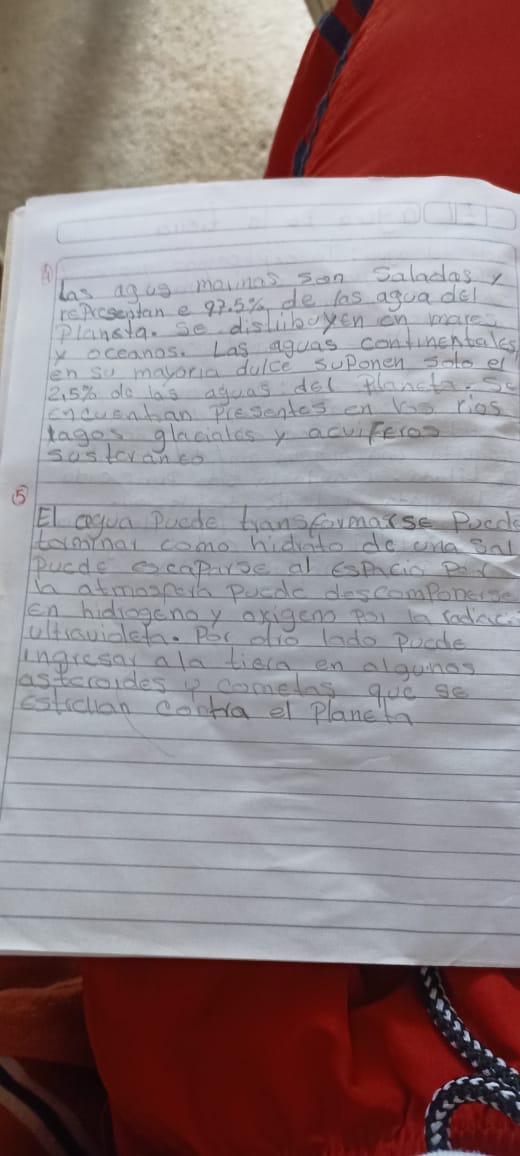 4
Las agus marinas son Saladas y
representan e 97.5% de las agua del
Planeta. se distiibuyen en mares
y oceanos. Las aguas continentales,
en su mayoria dulce suponen solo el
2,5% de las aguas del Planeta. Se
encuentran Presentes en los rios
lagos glaciales y acuiferos
susteraneo
5
El agua Puede transformarse Puede
terminar como hidrato de una Sal
Puede escaparse al espacio Por
la atmosfera puede descomponerse
en hidrogeno y oxigeno por la radiac
ultravioleta. Por otro lado puede
ingresar ala tiera en algunos
asteroides y cometas que se
estrellan contra el Planeta